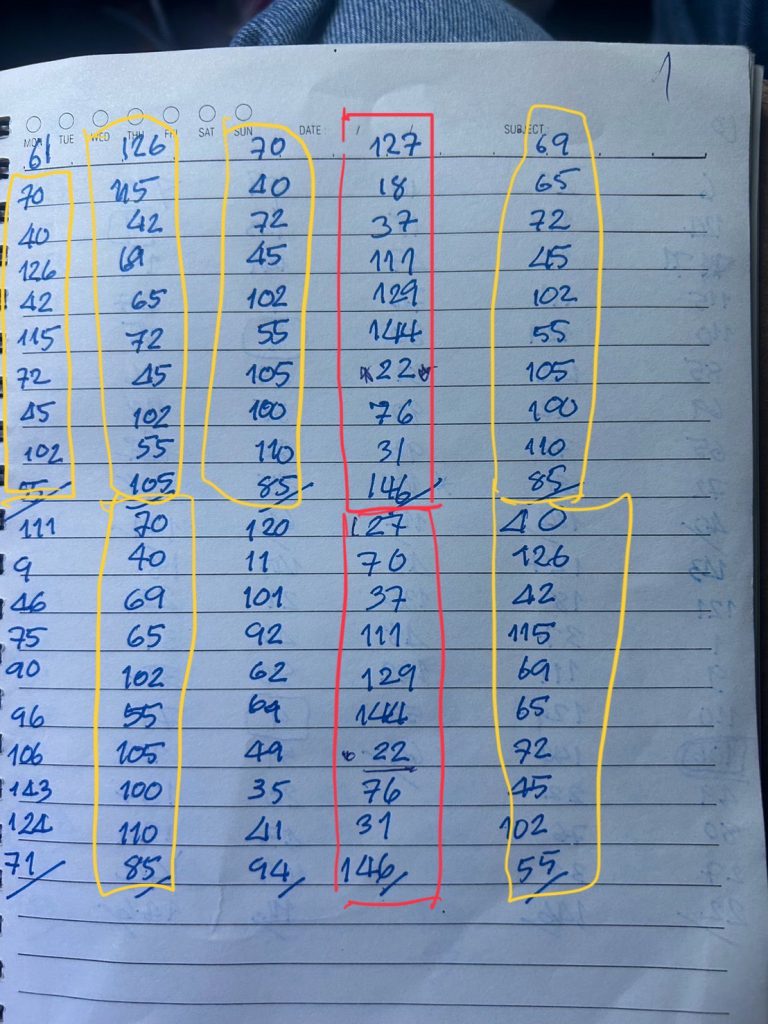 1
MON TUE WED THU FRI SAT SUN DATE / / SUBJECT
61 126 70 127 69
70 115 40 18 65
40 42 72 37 72
126 69 45 111 45
42 65 102 129 102
115 72 55 144 55
72 45 105 22 105
45 102 100 76 100
102 55 110 31 110
105 85 146 85
111 70 120 127 40
9 40 11 70 126
46 69 101 37 42
75 65 92 111 115
90 102 62 129 69
96 55 69 144 65
106 105 49 22 72
143 100 35 76 45
124 110 41 31 102
71 85 94 146 55